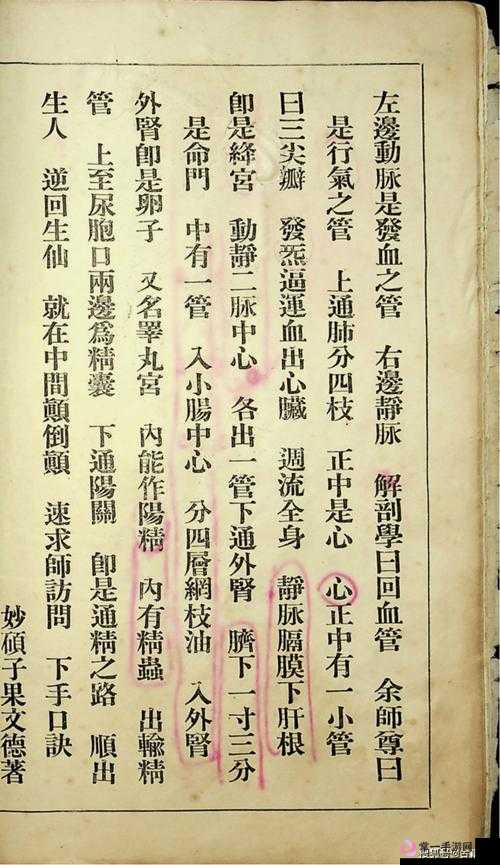 左邊動脉是發血之管　右邊靜脉　解剖學曰回血管　余師尊曰
是行氣之管　上通肺分四枝　正中是心　心正中有一小管
曰三尖瓣　發炁逼運血出心臟　週流全身　靜脉膈膜下肝根
卽是絳宮　動靜二脉中心　各出一管下通外腎　臍下一寸三分
是命門　中有一管　入小腸中心　分四層網枝油　入外腎
外腎卽是卵子　又名睪丸宮　內能作陽精　內有精蟲　出輸精
管　上至尿胞口兩邊爲精囊　下通陽關　卽是通精之路　順出
生人　逆回生仙　就在中間顛倒顛　速求師訪問　下手口訣
妙碩子果文德著
掌一手游网